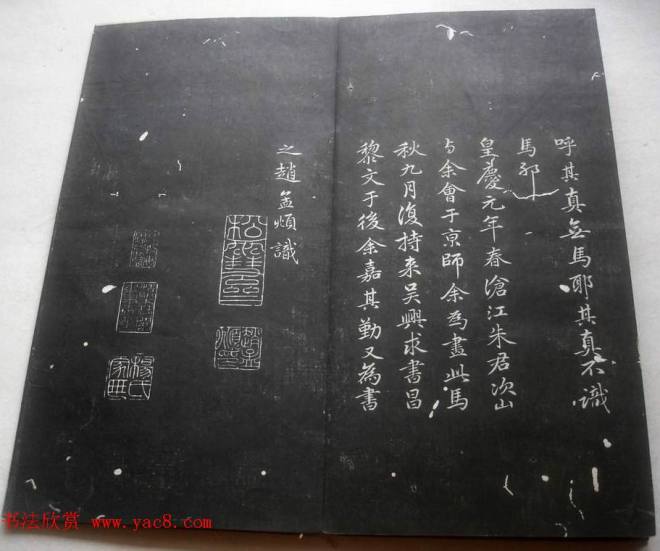 呼其真無馬耶其真不識
馬耶
皇慶元年春滄江朱君次山
与余會于京師余為畫此馬
秋九月復持来吴興求書昌
黎文于後余嘉其勤又為書
之趙孟頫識
松雪齋
趙孟頫印
楊氏家藏
书法欣赏 www.yac8.com